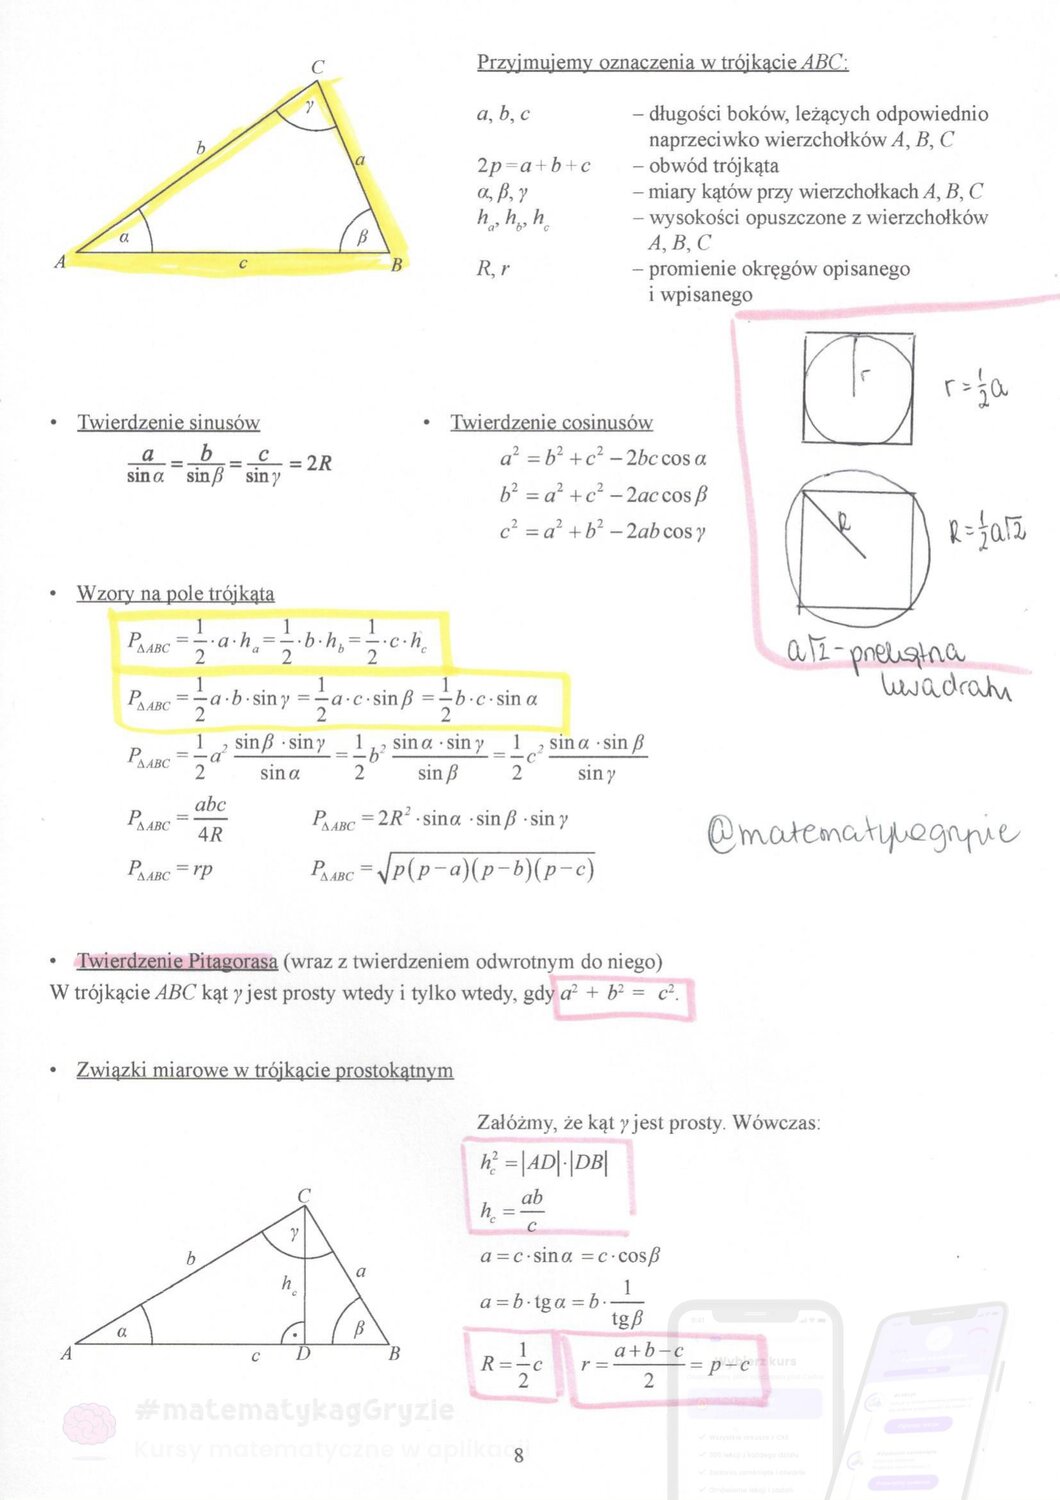 Przyjmujemy oznaczenia w trójkącie ABC:
C
γ
b
a
α
β
A
c
B
a, b, c – długości boków, leżących odpowiednio
naprzeciwko wierzchołków A, B, C
2p = a + b + c – obwód trójkąta
α, β, γ – miary kątów przy wierzchołkach A, B, C
hₐ, h_b, h_c – wysokości opuszczone z wierzchołków
A, B, C
R, r – promienie okręgów opisanego
i wpisanego
r
r = 1/2 a
R
R = 1/2 a√2
a√2 - przekątna
kwadratu
• Twierdzenie sinusów
a/sin α = b/sin β = c/sin γ = 2R
• Twierdzenie cosinusów
a² = b² + c² − 2bc cos α
b² = a² + c² − 2ac cos β
c² = a² + b² − 2ab cos γ
• Wzory na pole trójkąta
P_ΔABC = 1/2 · a · hₐ = 1/2 · b · h_b = 1/2 · c · h_c
P_ΔABC = 1/2 a · b · sin γ = 1/2 a · c · sin β = 1/2 b · c · sin α
P_ΔABC = 1/2 a² (sin β · sin γ)/sin α = 1/2 b² (sin α · sin γ)/sin β = 1/2 c² (sin α · sin β)/sin γ
P_ΔABC = abc/4R P_ΔABC = 2R² · sin α · sin β · sin γ
P_ΔABC = rp P_ΔABC = √(p(p − a)(p − b)(p − c))
@matematykagryzie
• Twierdzenie Pitagorasa (wraz z twierdzeniem odwrotnym do niego)
W trójkącie ABC kąt γ jest prosty wtedy i tylko wtedy, gdy a² + b² = c².
• Związki miarowe w trójkącie prostokątnym
Załóżmy, że kąt γ jest prosty. Wówczas:
h_c² = |AD| · |DB|
h_c = ab/c
a = c · sin α = c · cos β
a = b · tg α = b · 1/tg β
R = 1/2 c r = (a + b − c)/2 = p − c
C
γ
b
a
h_c
α
β
A
c
D
B
#matematykagGryzie
Kursy matematyczne w aplikacji
Wybierz kurs
8